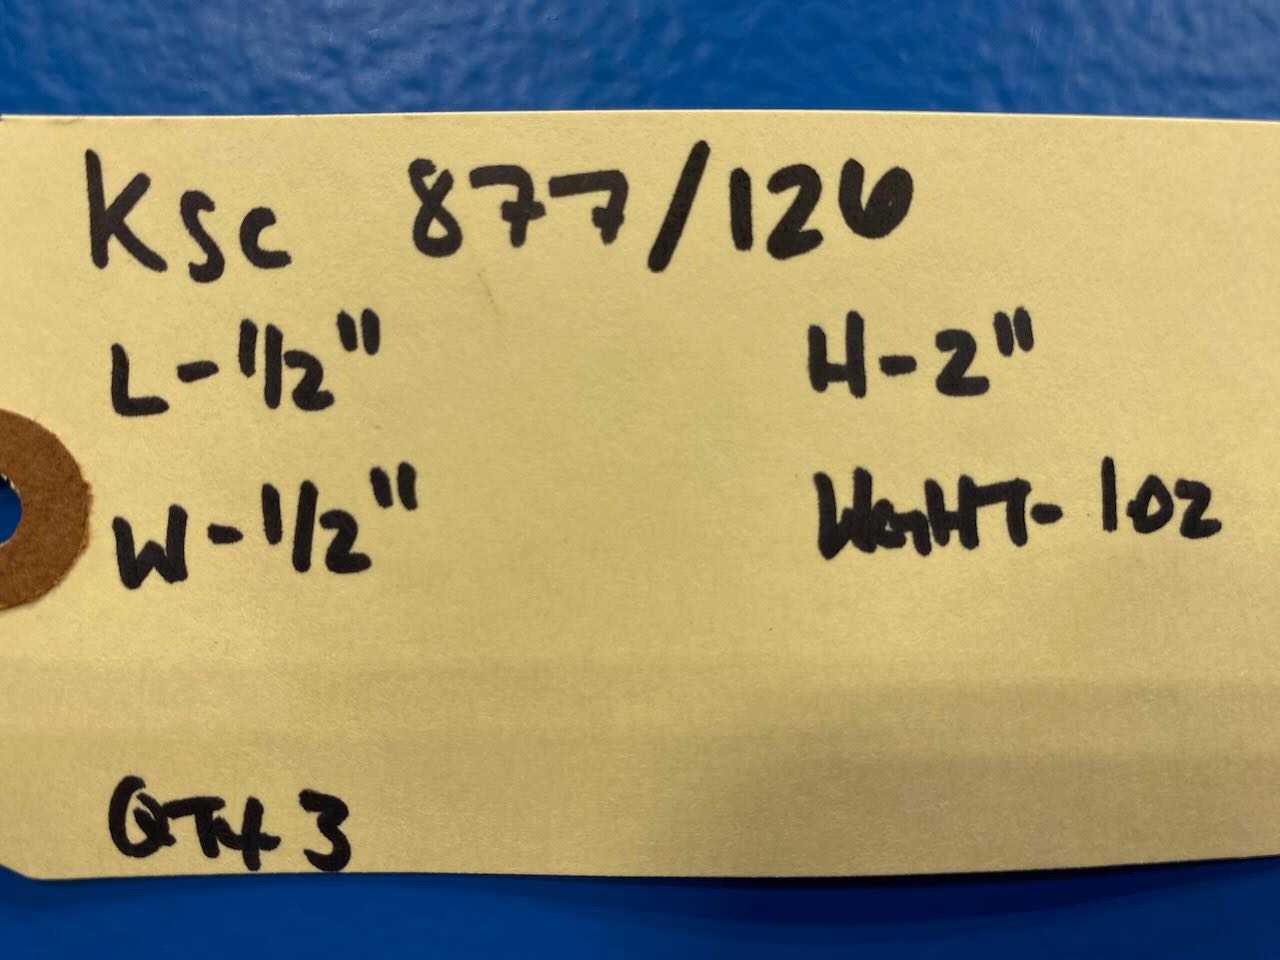 KSC 877/126
L-1/2" H-2"
W-1/2" 1oz
QTY 3